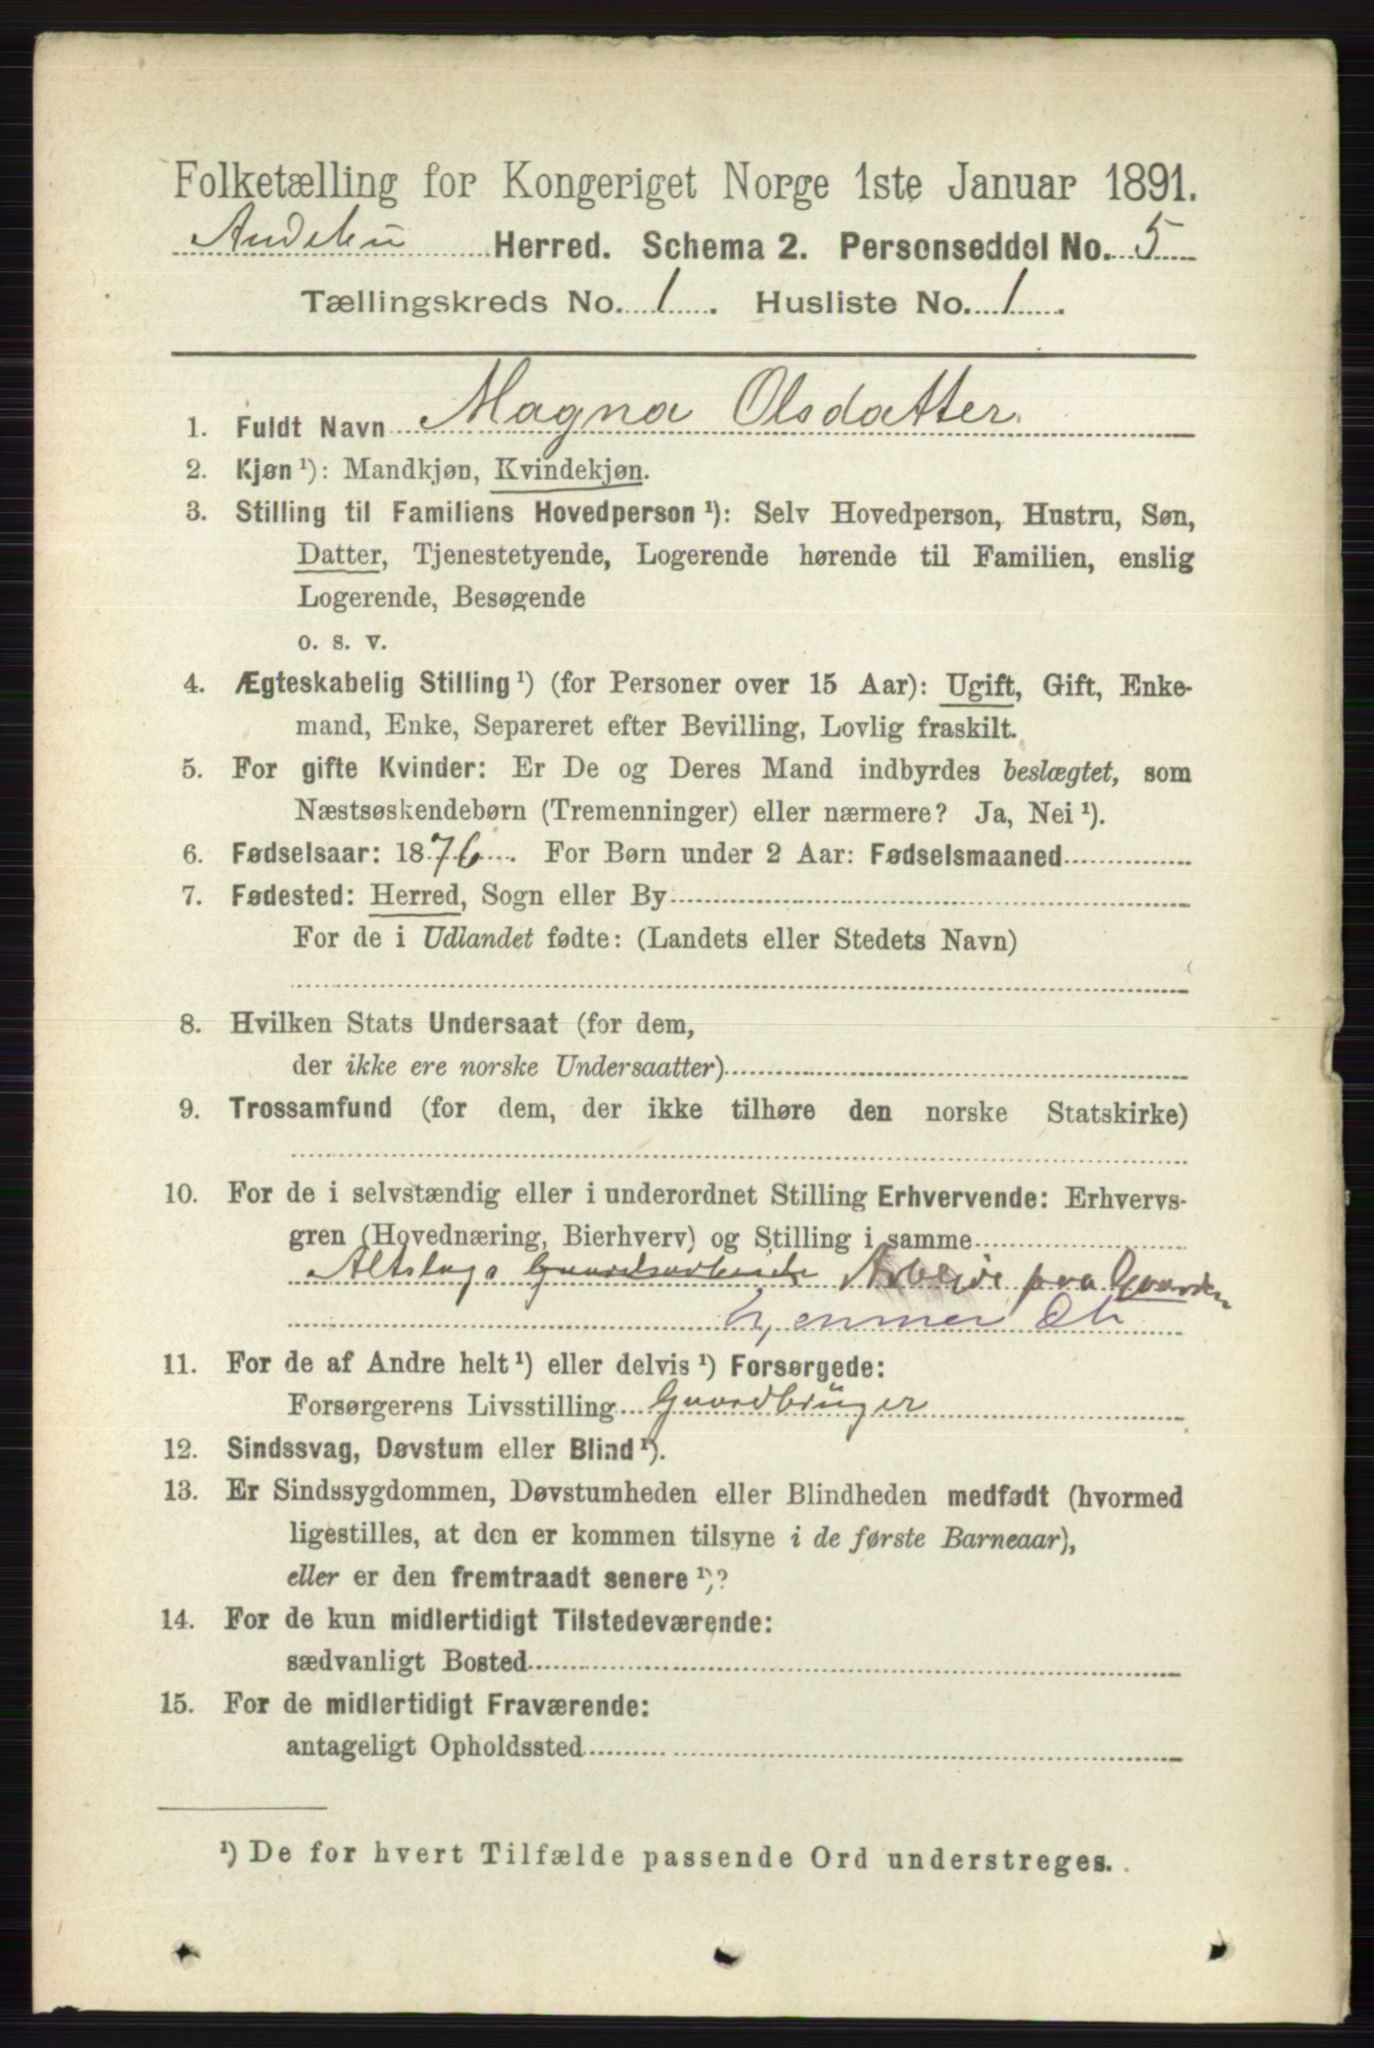 Folketælling for Kongeriget Norge 1ste Januar 1891.
Andebu Herred. Schema 2. Personseddel No. 5
Tællingskreds No. 1. Husliste No. 1.
1. Fuldt Navn Magna Olsdatter
2. Kjøn¹): Mandkjøn, Kvindekjøn.
3. Stilling til Familiens Hovedperson¹): Selv Hovedperson, Hustru, Søn,
Datter, Tjenestetyende, Logerende hørende til Familien, enslig
Logerende, Besøgende
o. s. v.
4. Ægteskabelig Stilling¹) (for Personer over 15 Aar): Ugift, Gift, Enke-
mand, Enke, Separeret efter Bevilling, Lovlig fraskilt.
5. For gifte Kvinder: Er De og Deres Mand indbyrdes beslægtet, som
Næstsøskendebørn (Tremenninger) eller nærmere? Ja, Nei¹).
6. Fødselsaar: 1876. For Børn under 2 Aar: Fødselsmaaned
7. Fødested: Herred, Sogn eller By
For de i Udlandet fødte: (Landets eller Stedets Navn)
8. Hvilken Stats Undersaat (for dem,
der ikke ere norske Undersaatter)
9. Trossamfund (for dem, der ikke tilhøre den norske Statskirke)
10. For de i selvstændig eller i underordnet Stilling Erhvervende: Erhvervs-
gren (Hovednæring, Bierhverv) og Stilling i samme
Altslags Gaardsarbeide Arbeide paa Gaarden
11. For de af Andre helt¹) eller delvis¹) Forsørgede:
Forsørgerens Livsstilling Gaardbrüger
12. Sindssvag, Døvstum eller Blind¹).
13. Er Sindssygdommen, Døvstumheden eller Blindheden medfødt (hvormed
ligestilles, at den er kommen tilsyne i de første Barneaar),
eller er den fremtraadt senere¹)?
14. For de kun midlertidigt Tilstedeværende:
sædvanligt Bosted
15. For de midlertidigt Fraværende:
antageligt Opholdssted
¹) De for hvert Tilfælde passende Ord understreges.